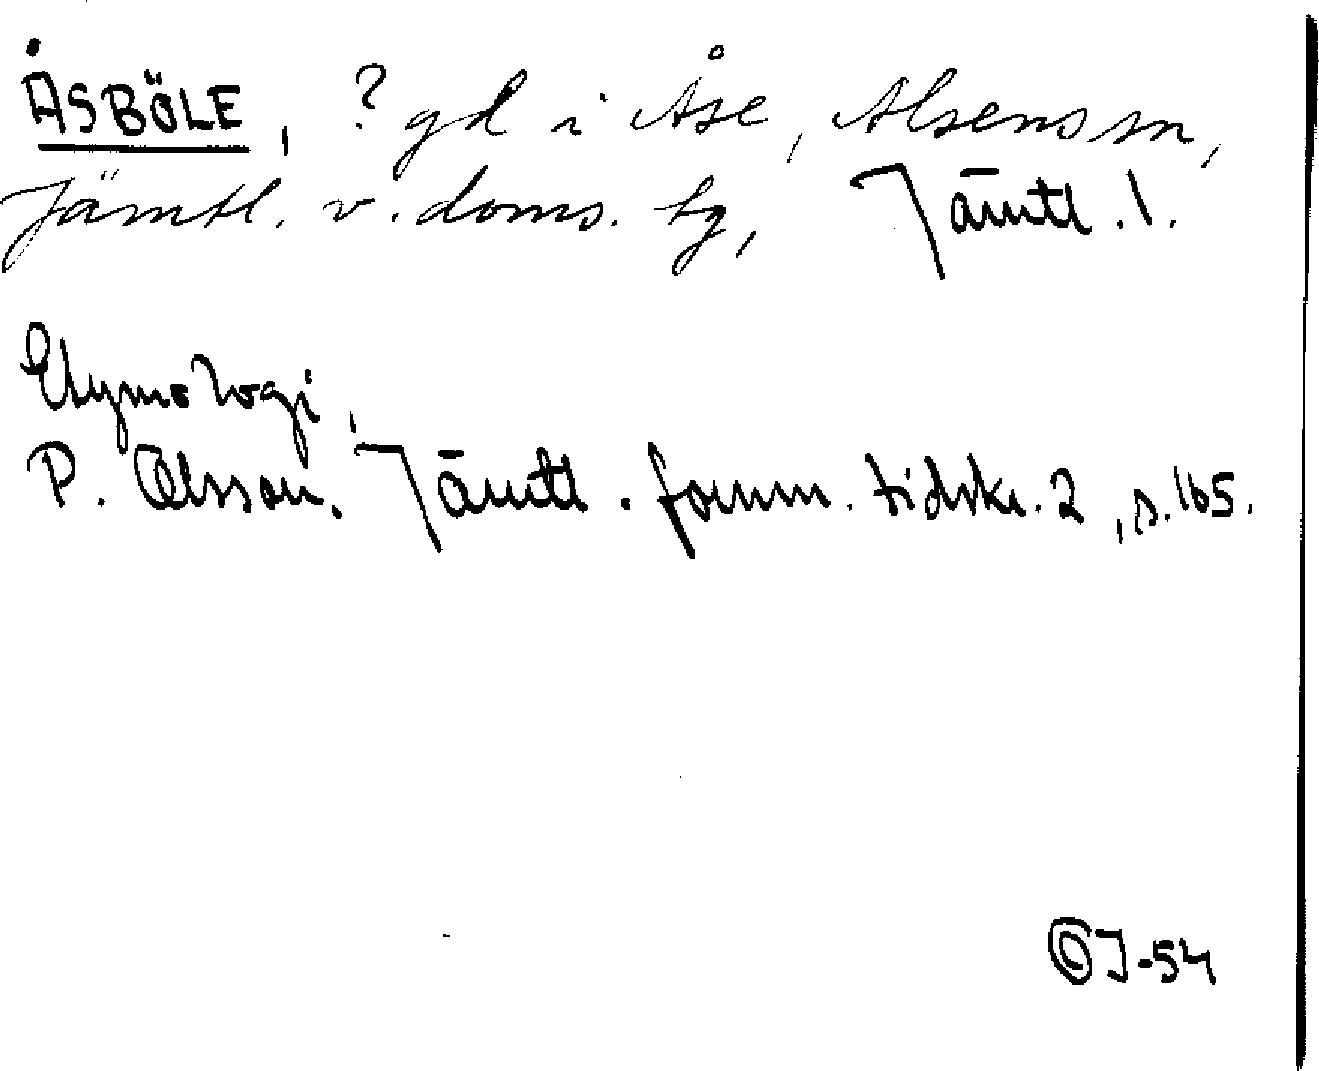 ÅSBÖLE, ? gd i Åse, Alsens sn,
Jämtl. v. doms. tg, Jämtl. l.
Etymologi.
P. Olsson, Jämtl. fornm. tidskr. 2, s. 165.
ÖJ-54